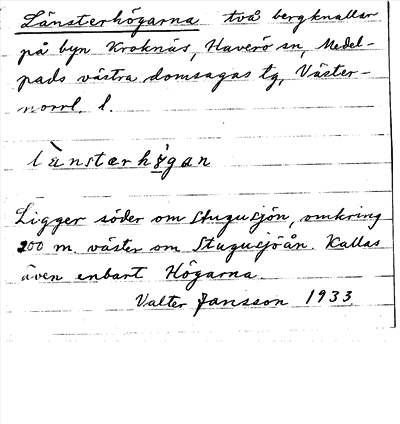 Länsterhögarna två bergknallar
på byn Kroknäs, Haverö sn, Medel-
pads västra domsagas tg, Väster-
norrl. l.
länstərhögan
Ligger söder om Stugusjön, omkring
200 m. väster om Stugusjöån. Kallas
även enbart Högarna.
Valter Jansson 1933